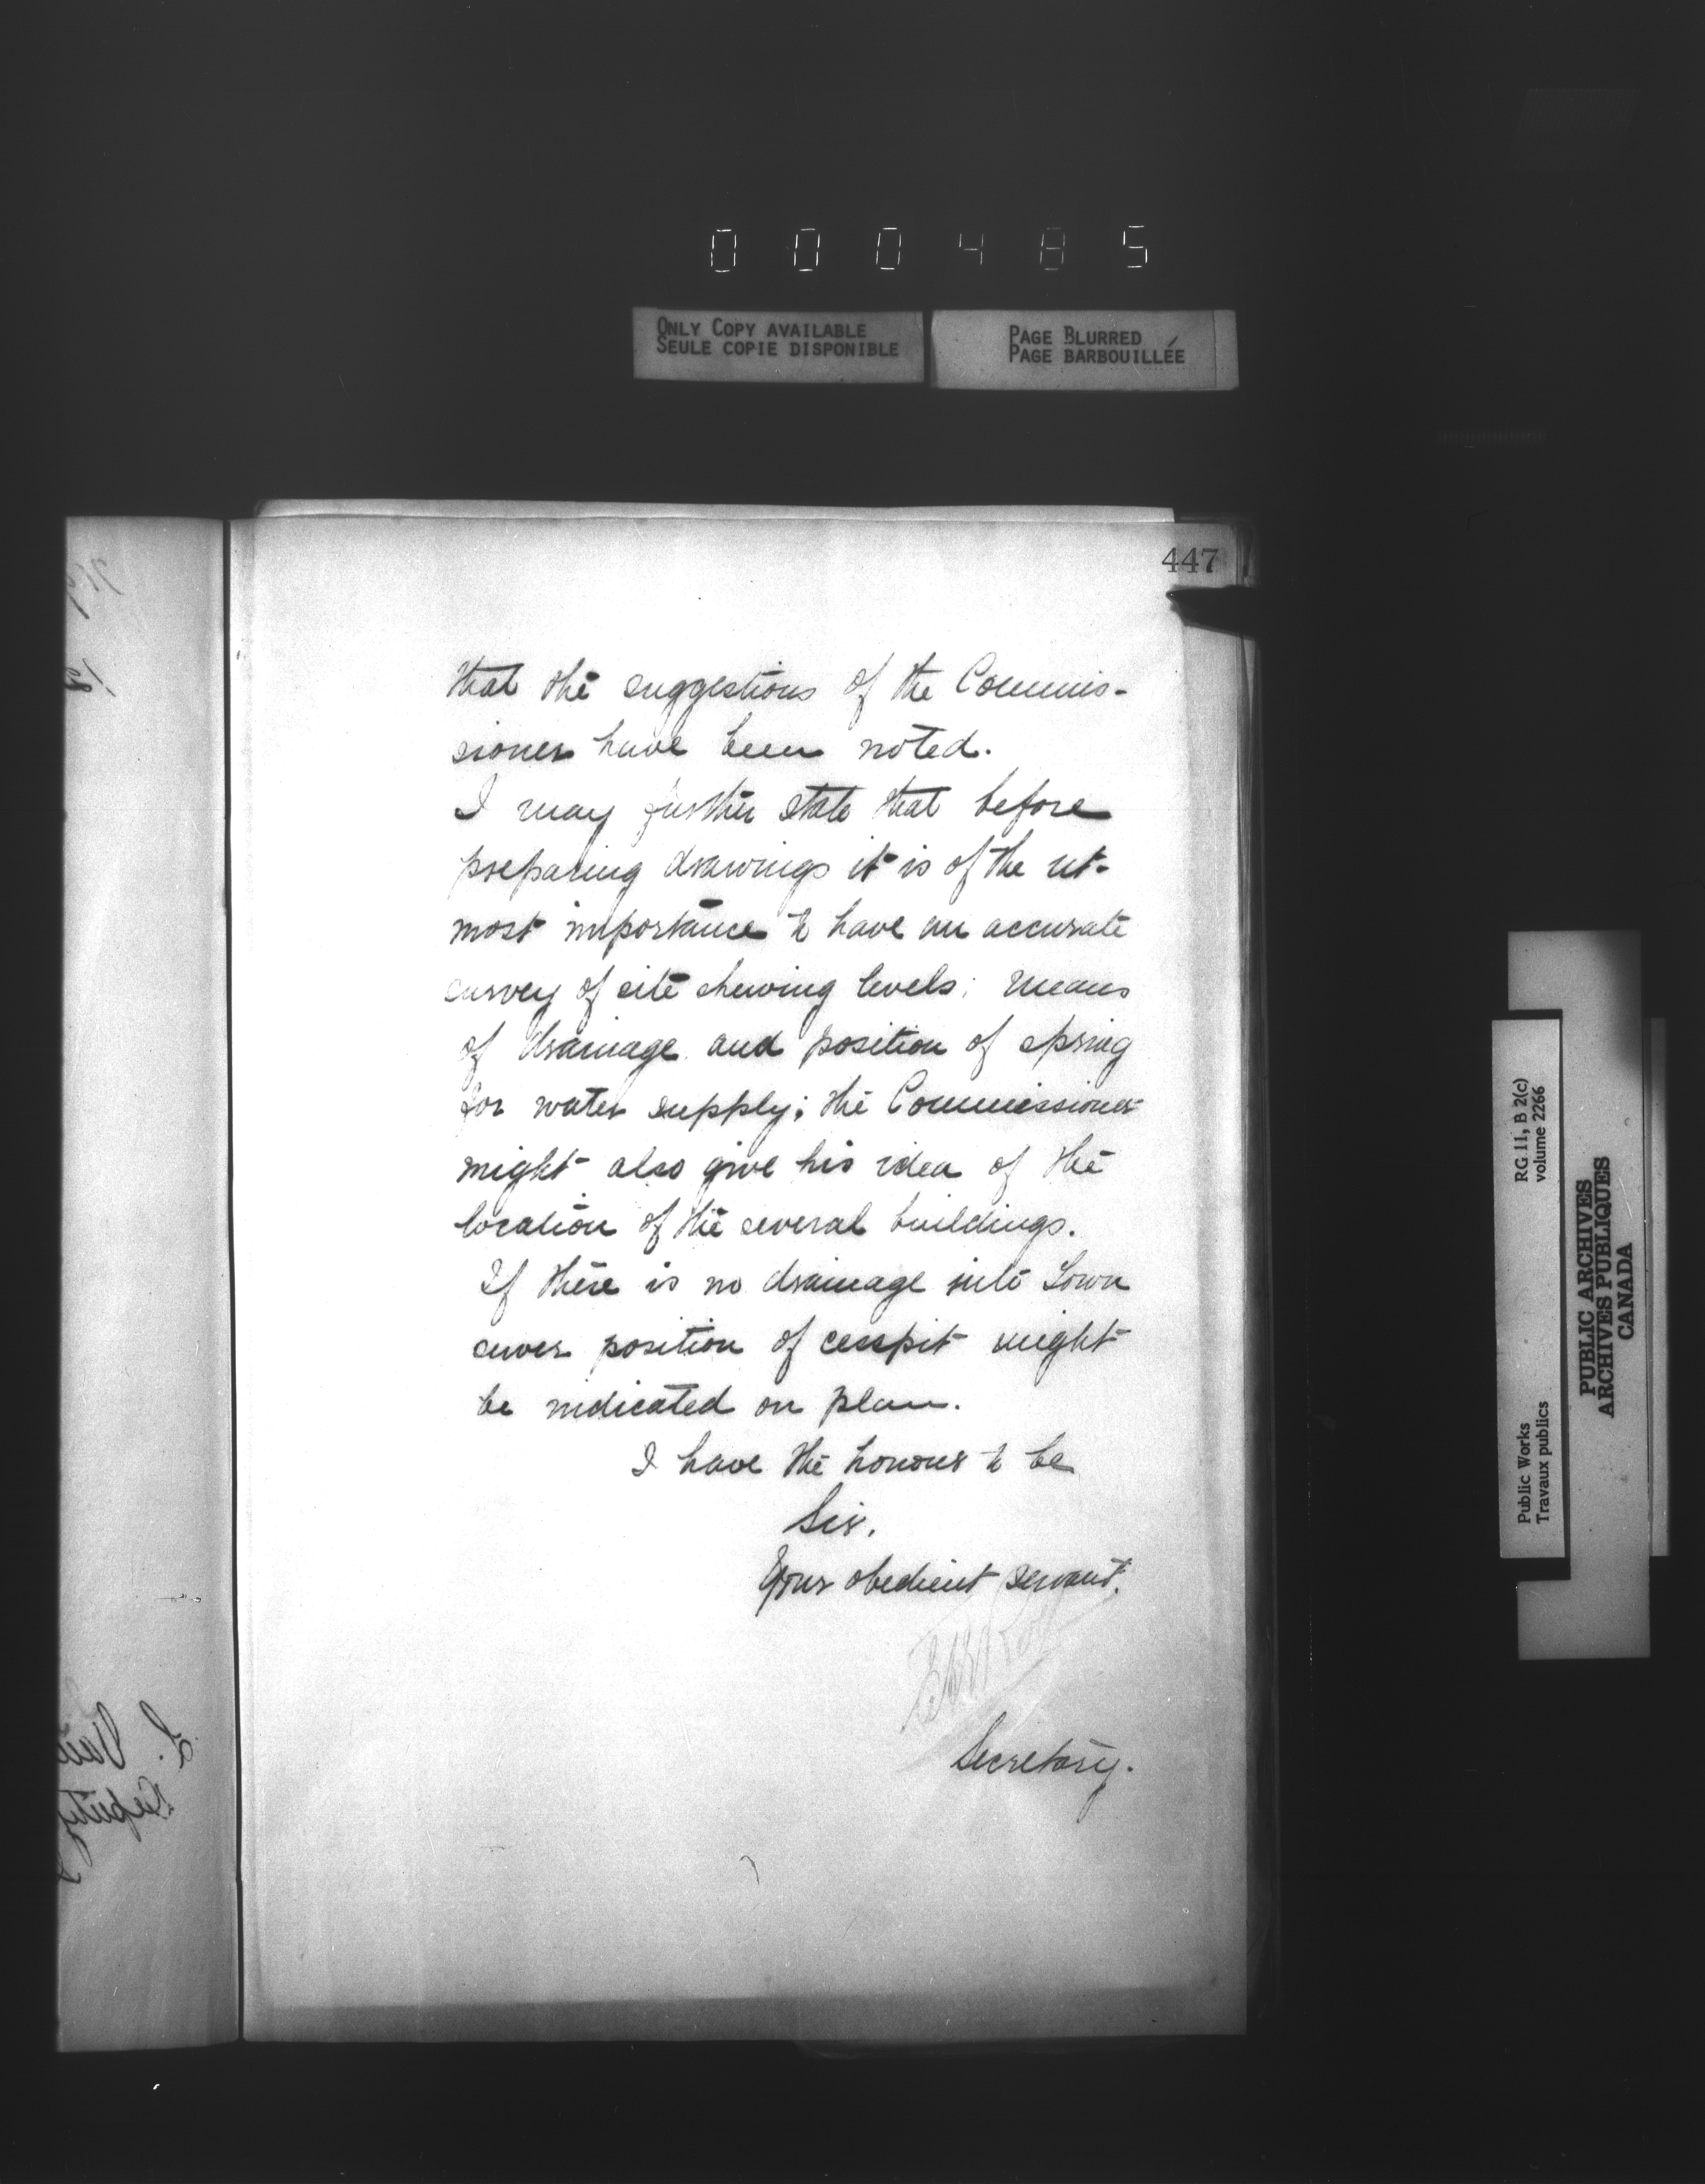 000485
ONLY COPY AVAILABLE
SEULE COPIE DISPONIBLE
PAGE BLURRED
PAGE BARBOUILLÉE
447
that the suggestions of the Commis-
sioner have been noted.
I may further state that before
preparing drawings it is of the ut-
most importance to have an accurate
survey of site shewing levels; means
of drainage and position of spring
for water supply; the Commissioner
might also give his idea of the
location of the several buildings.
If there is no drainage into Town
sewer position of cesspit might
be indicated on plan.
I have the honour to be
Sir,
Your obedient servant,
Secretary.
Public Works
Travaux publics
RG 11, B 2(c)
volume 2266
PUBLIC ARCHIVES
ARCHIVES PUBLIQUES
CANADA